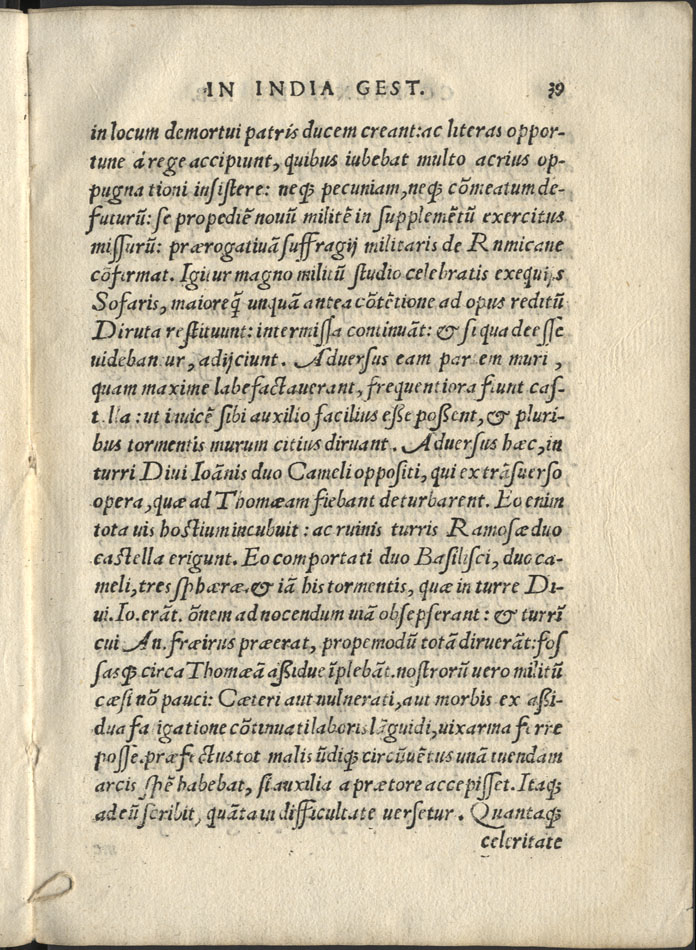 IN INDIA GEST. 39
in locum demortui patris ducem creant: ac literas oppor-
tune á rege accipiunt, quibus iubebat multo acrius op-
pugna tioni insistere: neqꝫ pecuniam, neqꝫ cõmeatum de-
futurũ: se propediẽ nouũ militẽ in supplemẽtũ exercitus
missurũ: prærogatiuã suffragij militaris de Rumicane
cõfirmat. Igitur magno militũ studio celebratis exequijs
Sofaris, maioreq̃ unquã antea cõtẽtione ad opus reditũ
Diruta restituunt: intermissa continuãt: & si qua deesse
uideban ur, adijciunt. Aduersus eam par em muri,
quam maxime labefactauerant, frequentiora fiunt cas-
t lla: ut inuicẽ sibi auxilio facilius esse possent, & pluri-
bus tormentis murum citius diruant. Aduersus hæc, in
turri Diui Ioãnis duo Cameli oppositi, qui ex trãsuerso
opera, quæ ad Thomæam fiebant deturbarent. Eo enim
tota uis hostium incubuit: ac ruinis turris Ramosæ duo
castella erigunt. Eo comportati duo Basilisci, duo ca-
meli, tres sphæræ, & iã his tormentis, quæ in turre Di-
ui. Io. erãt. õnem ad nocendum uiã obsepserant: & turrĩ
cui An. fræirus præerat, propemodũ totã diruerãt: fos
sasqꝫ circa Thomæã assidue ĩplebãt. nostrorũ uero militũ
cæsi nõ pauci: Cæteri aut uulnerati, aut morbis ex assi-
dua fa igatione cõtinuati laboris lãguidi, uix arma ferre
posse. præfectus tot malis ũdiqꝫ circũuẽtus unã tuendam
arcis spẽ habebat, si auxilia a prætore accepisset. Itaqꝫ
ad eũ scribit, quãta in difficultate uersetur. Quantaqꝫ
celeritate